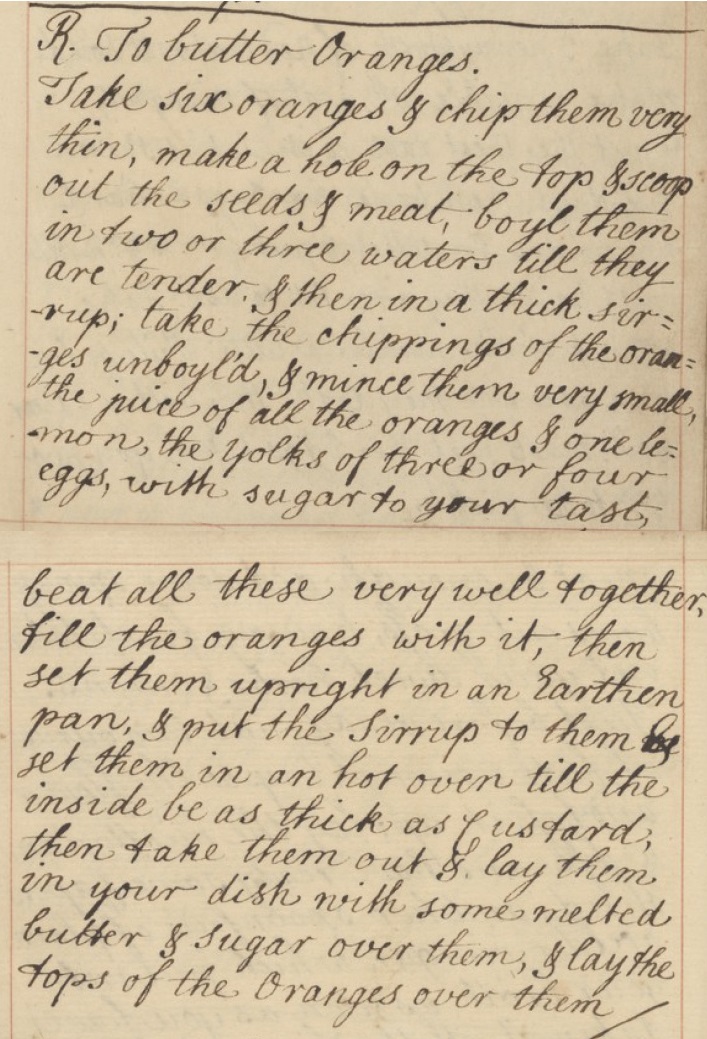 R. To butter Oranges.
Take six oranges & chip them very
thin, make a hole on the top & scoop
out the seeds & meat, boyl them
in two or three waters till they
are tender, & then in a thick sir=
-rup; take the chippings of the oran=
-ges unboyl'd, & mince them very small,
the juice of all the oranges & one le=
-mon, the yolks of three or four
eggs, with sugar to your tast,
beat all these very well together,
fill the oranges with it, then
set them upright in an Earthen
pan, & put the Sirrup to them &
set them in an hot oven till the
inside be as thick as Custard,
then take them out & lay them
in your dish with some melted
butter & sugar over them, & lay the
tops of the Oranges over them